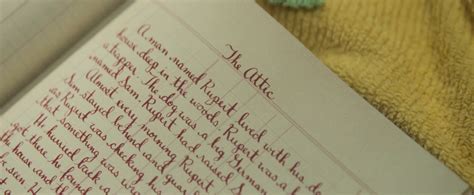 The Attic
A man named Rupert lived with his do
house deep in the woods. Rupert was
a trapper. The dog was a big German
named Sam. Rupert had raised S
Almost every morning Rupert
Sam stayed behind and guar
as Rupert was checking his
that something was
He hurried back a
got there he found
the house and it